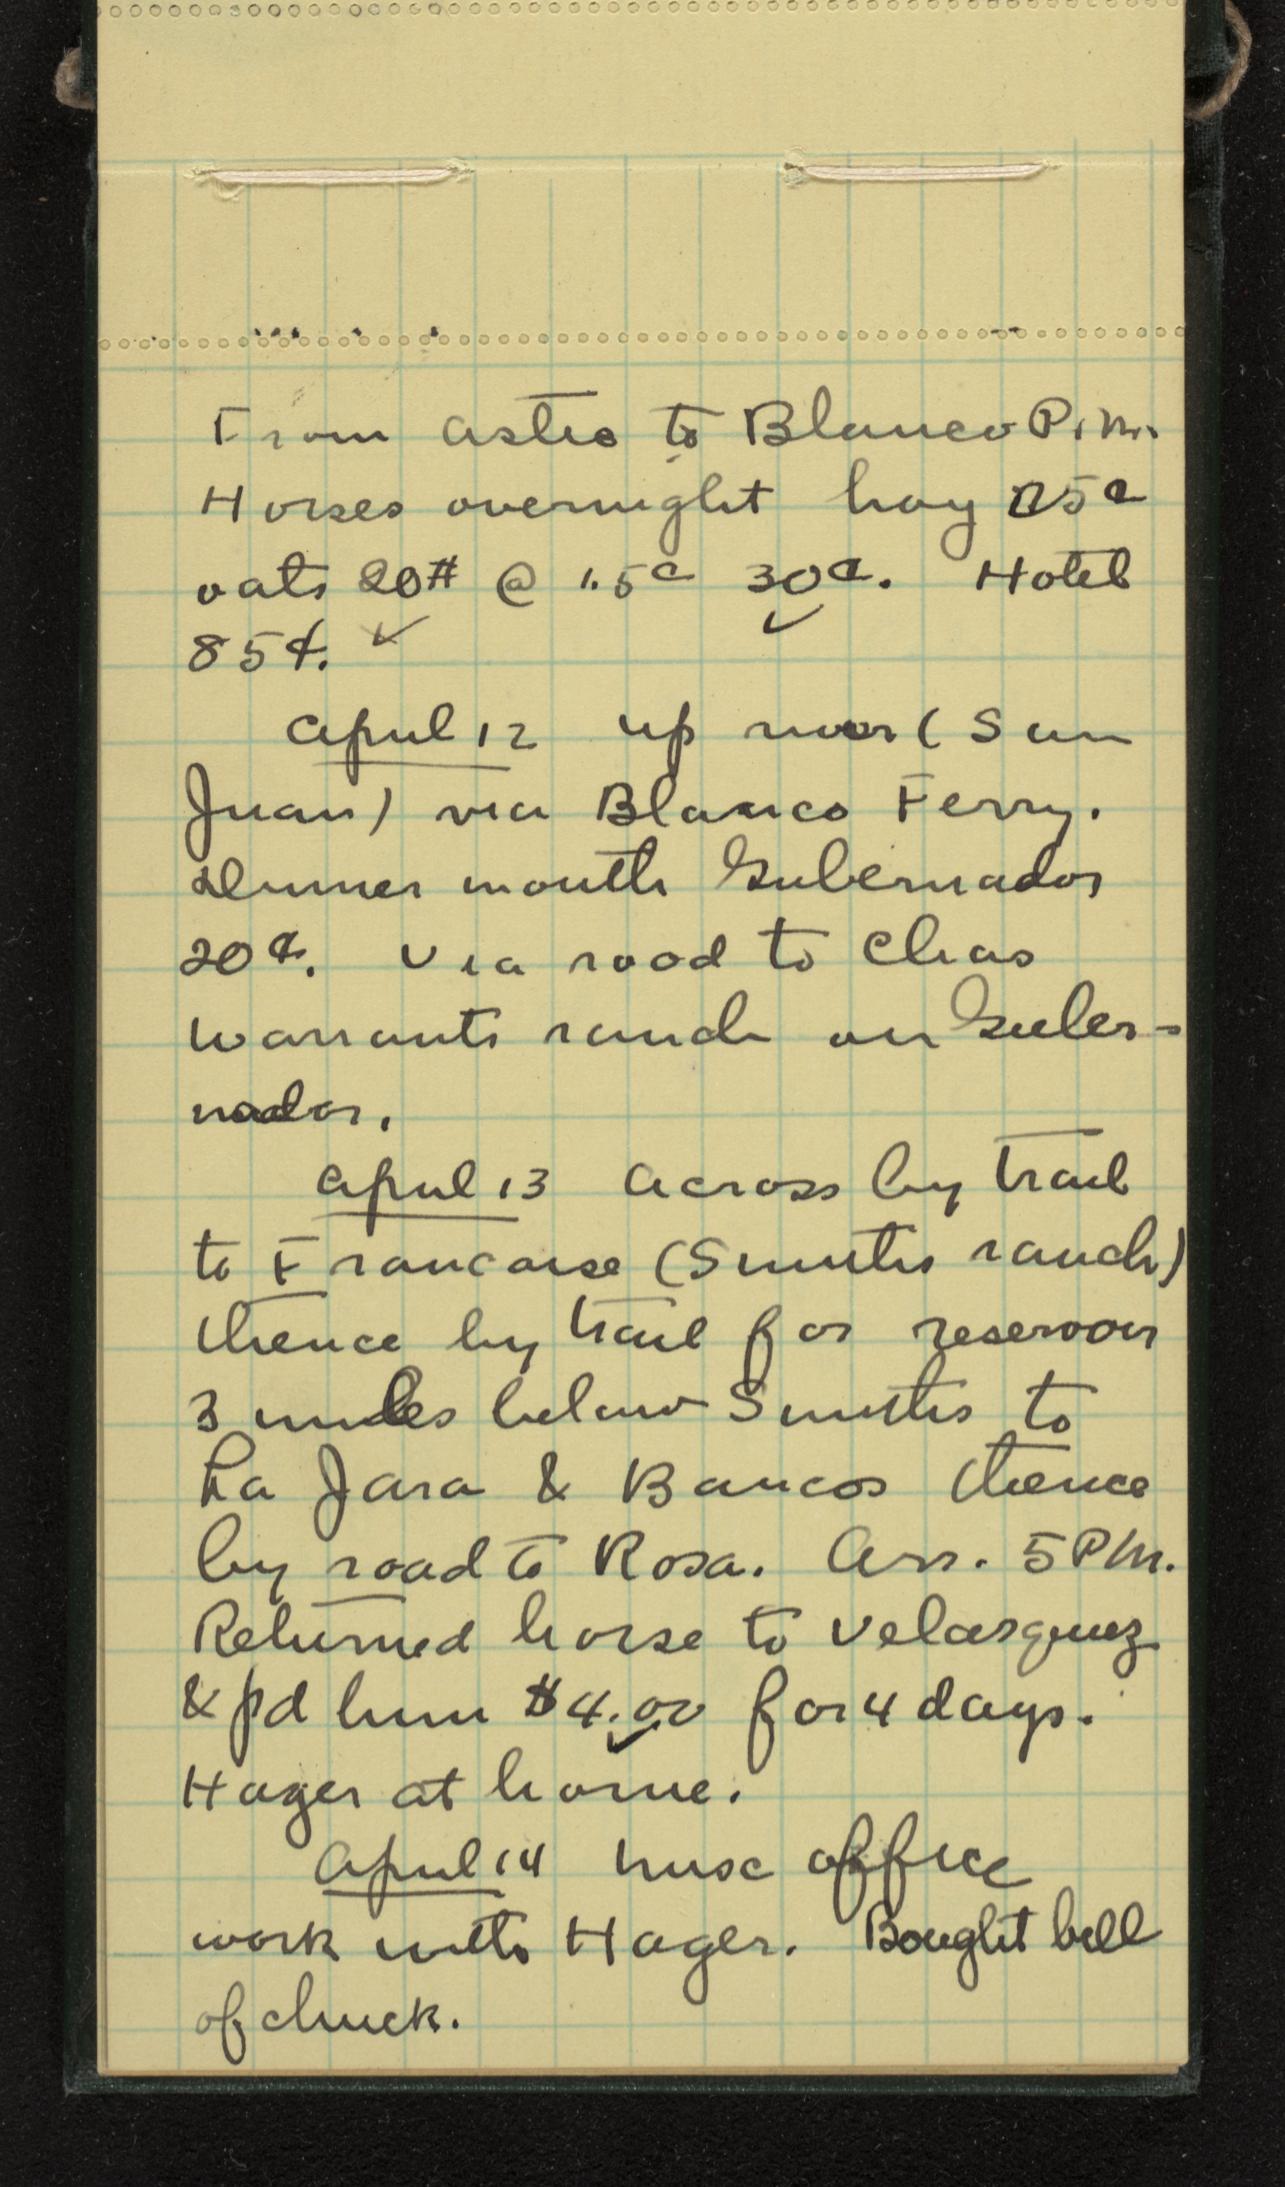 From Aztec to Blanco P.M.
Horses overnight hay 75¢
oats 20# @ 1.5¢ 30¢. Hotel
85¢.
April 12 up river (San
Juan) via Blanco Ferry.
Dinner mouth Gubernador
20¢. Via road to Chas
Warrants ranch on Guber-
nador.
April 13 Across by trail
to Francaise (Smiths ranch)
thence by trail for reservoir
3 miles below Smiths to
La Jara & Bancos thence
by road to Rosa. Arr. 5 P.M.
Returned horse to Velasquez
& pd him $4.00 for 4 days.
Hager at home.
April 14 Misc office
work with Hager. Bought bill
of chuck.